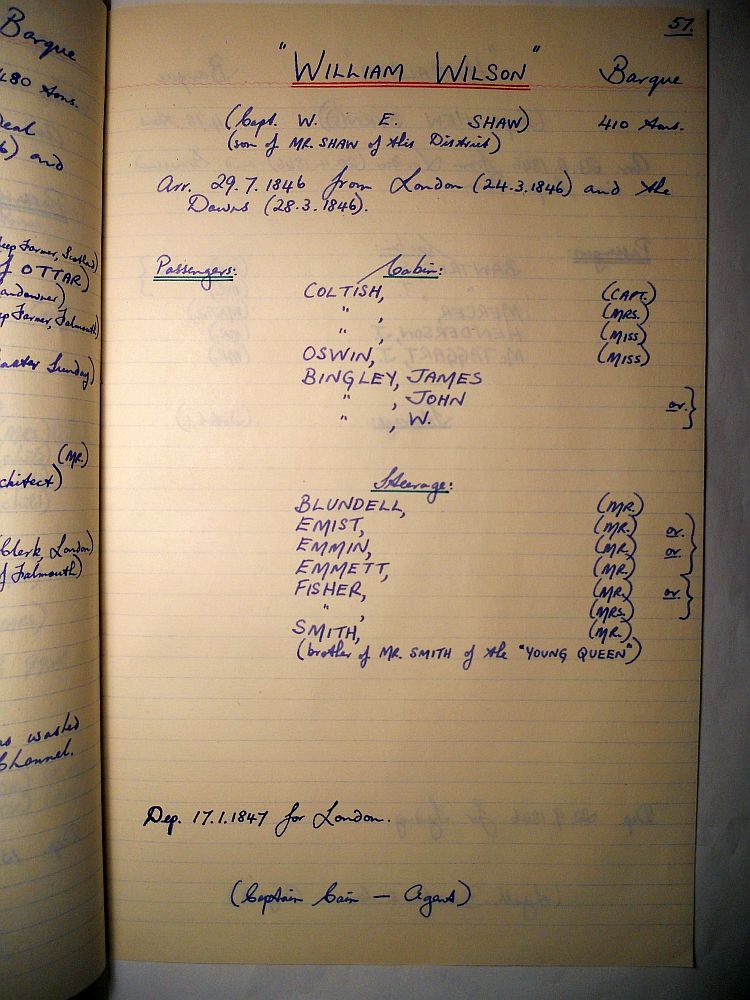 Barque
480 tons.
Deal
6) and
Sheep Farmer, Scotland)
of OTTAR)
Landowner)
Sheep Farmer, Falmouth)
Easter Sunday)
(MR.)
chitect)
Clerk, London)
of Falmouth)
as washed
Channel.
57.
"WILLIAM WILSON" Barque
(Capt. W. E. SHAW) 410 tons.
(son of MR. SHAW of this District)
Arr. 29.7.1846 from London (24.3.1846) and the
Downs (28.3.1846).
Passengers: Cabin:
COLTISH, (CAPT.)
" , (MRS.)
" , (MISS)
OSWIN, (MISS)
BINGLEY, JAMES
" , JOHN or. }
" , W.
Steerage:
BLUNDELL, (MR.)
EMIST, (MR.) or. }
EMMIN, (MR.) or.
EMMETT, (MR.)
FISHER, (MR.) or. }
" , (MRS.)
SMITH, (MR.)
(brother of MR. SMITH of the "YOUNG QUEEN")
Dep. 17.1.1847 for London.
(Captain Cain — Agent)